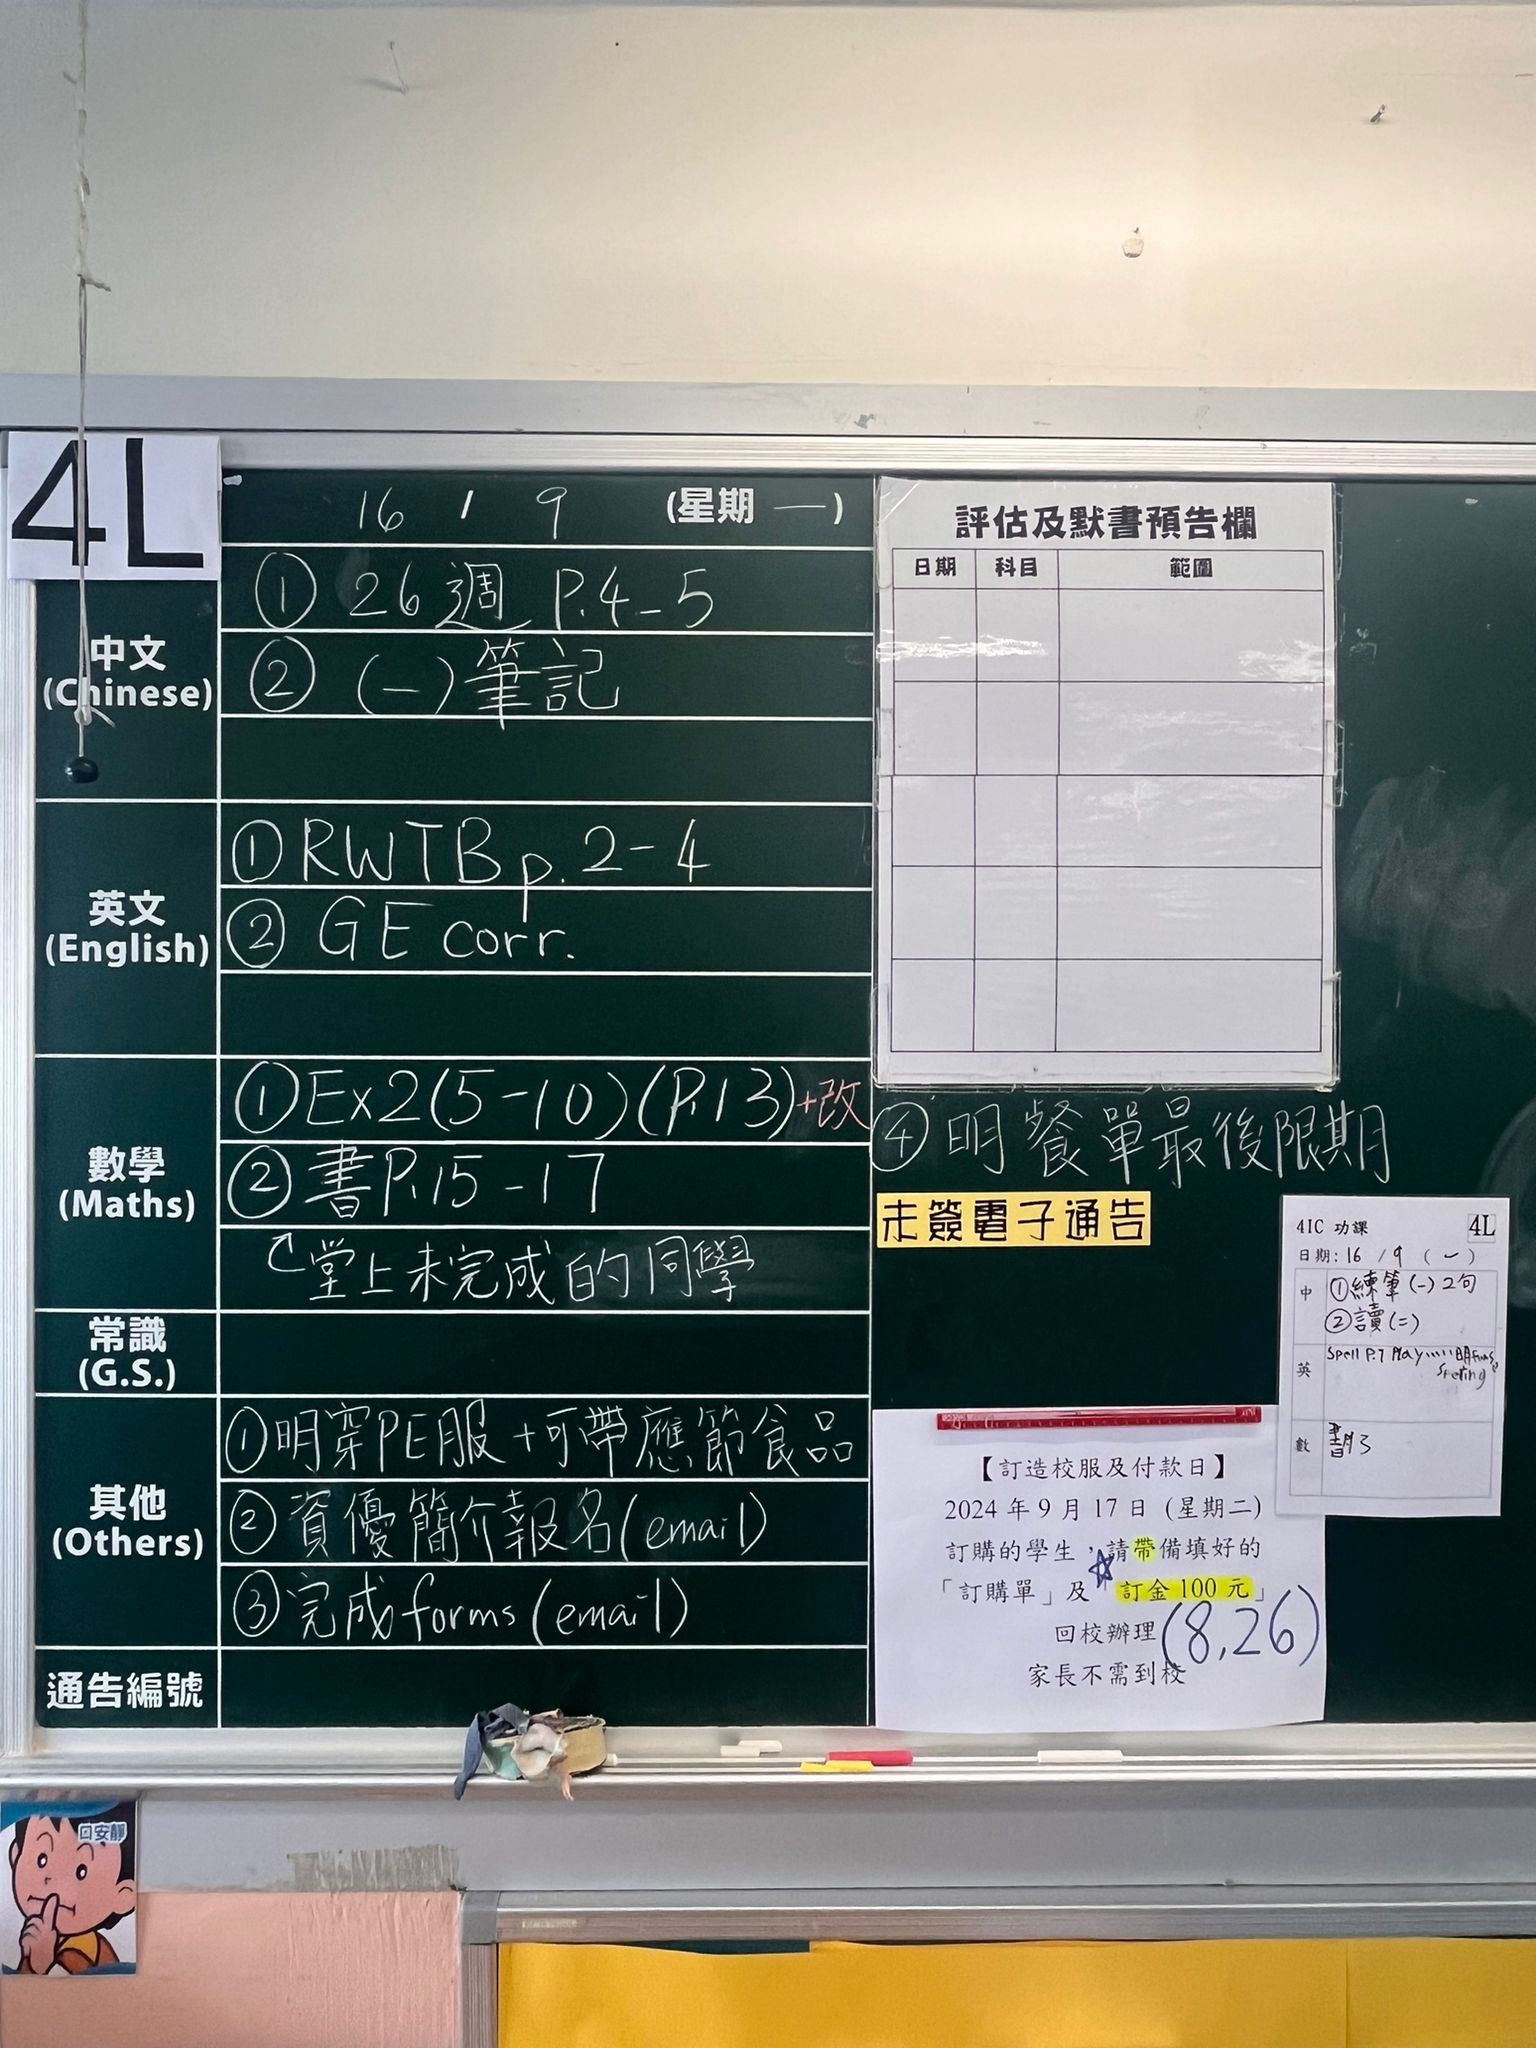 4L
16 / 9 (星期 一)
中文
(Chinese)
① 26週 P.4-5
② (一)筆記
英文
(English)
① RWTB p.2-4
② GE corr.
數學
(Maths)
① Ex2(5-10)(P.13)+改
② 書P.15-17
堂上未完成的同學
常識
(G.S.)
其他
(Others)
①明穿PE服+可帶應節食品
②資優簡介報名(email)
③完成forms(email)
通告編號
評估及默書預告欄
日期 科目 範圍
④明餐單最後限期
未簽電子通告
4IC 功課 4L
日期: 16 / 9 (一)
中 ①練筆(一)2句
②讀(二)
英 Spell P.7 Play
數
【訂造校服及付款日】
2024 年 9 月 17 日 (星期二)
訂購的學生，請帶備填好的
「訂購單」及「訂金 100 元」
回校辦理 (8,26)
家長不需到校
口安靜